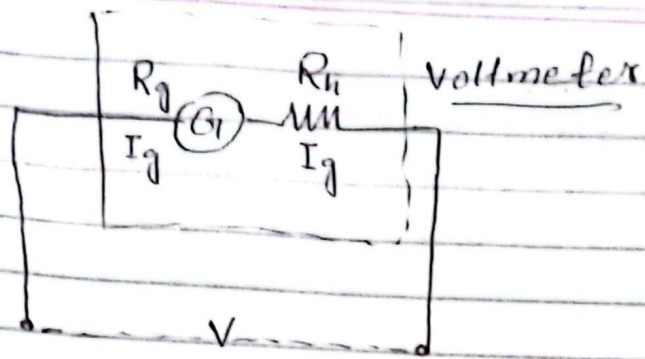 Rg Rh Voltmeter
G
Ig Ig
V